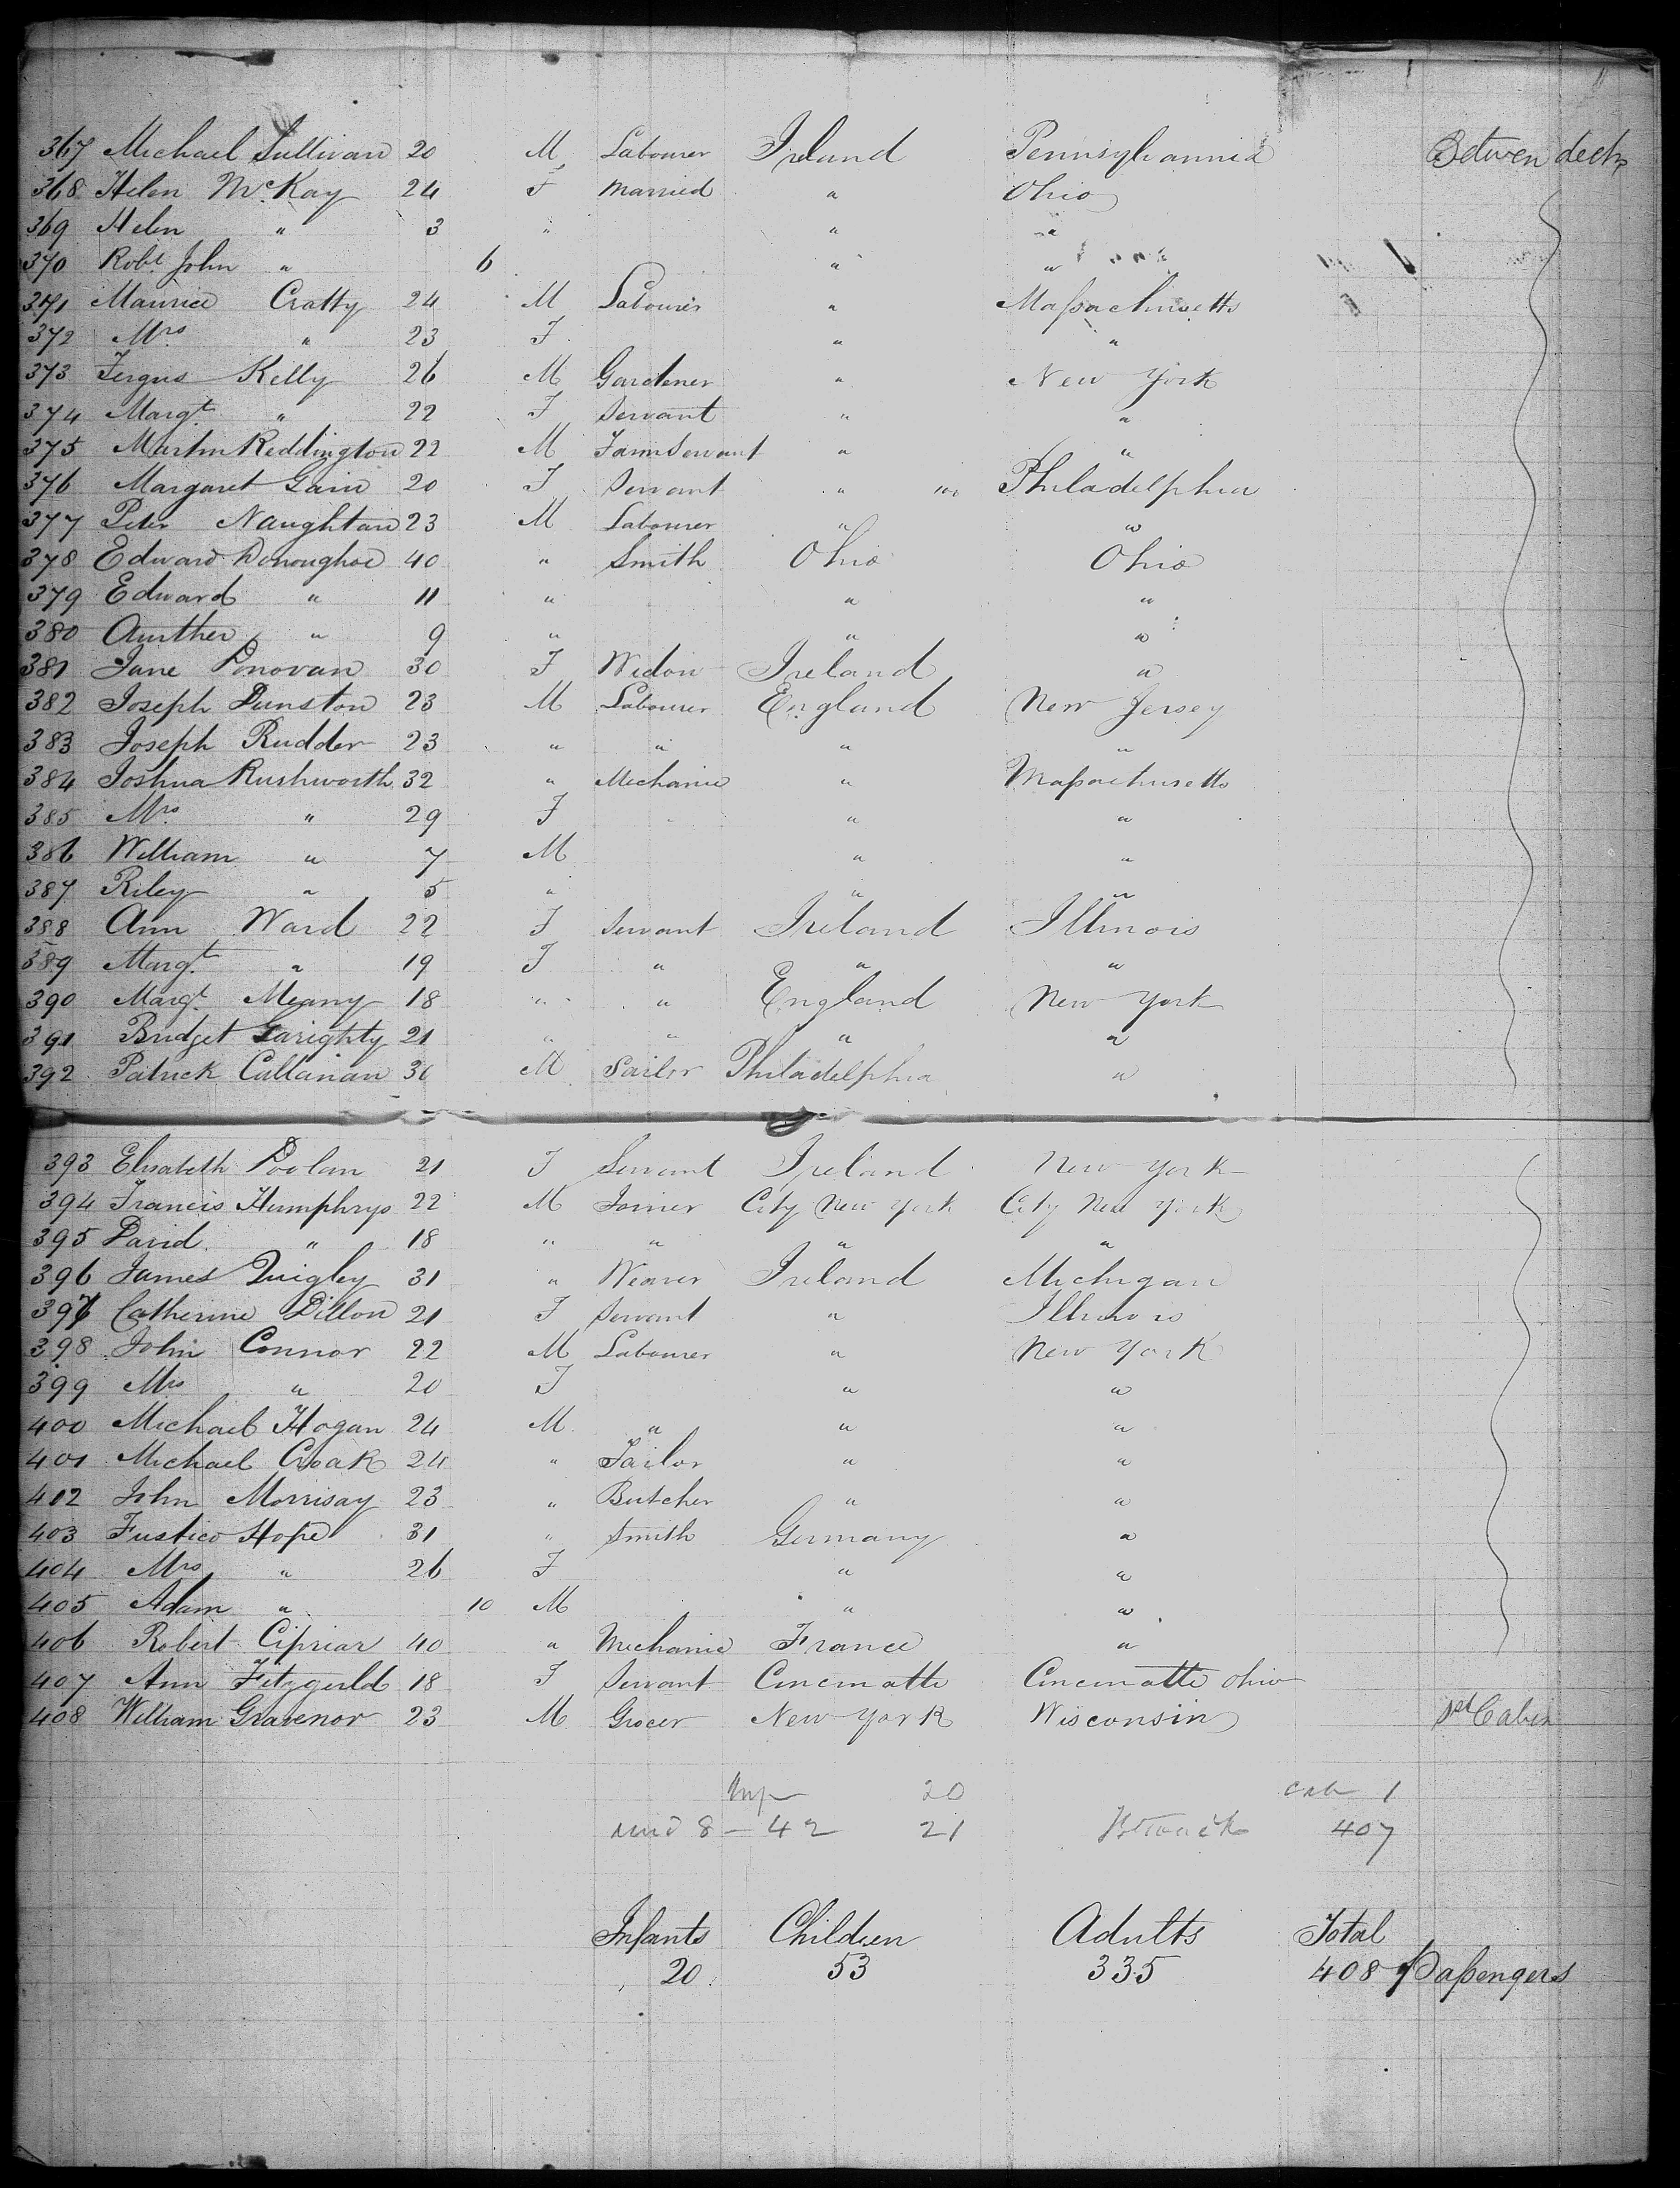 367 Michael Sullivan 20 M Labourer Ireland Pennsylvannia Betwen decks
368 Helen McKay 24 F Married " Ohio
369 Helen " 3 " " "
370 Robt John " 6 " "
371 Maurice Cratty 24 M Labourer " Massachusetts
372 Mrs " 23 F " "
373 Fergus Kelly 26 M Gardener " New York
374 Margt " 22 F Servant " "
375 Martin Reddington 22 M Farm Servant " "
376 Margaret Gain 20 F Servant " Philadelphia
377 Peter Naughtan 23 M Labourer " "
378 Edward Donoughoe 40 " Smith Ohio Ohio
379 Edward " 11 " " "
380 Aurther " 9 " " "
381 Jane Donovan 30 F Widow Ireland "
382 Joseph Dunston 23 M Labourer England New Jersey
383 Joseph Rudder 23 " " " "
384 Joshua Rushworth 32 " Mechanic " Massachusetts
385 Mrs " 29 F " "
386 William " 7 M " "
387 Riley " 5 " " "
388 Ann Ward 22 F Servant Ireland Illinois
389 Margt " 19 F " " "
390 Margt Meany 18 " " England New York
391 Bridget Garighty 21 " " " "
392 Patrick Callanan 30 M Sailor Philadelphia "
393 Elisabeth Doolan 21 F Servant Ireland New York
394 Francis Humphrys 22 M Joiner City New York City New York
395 David " 18 " " " "
396 James Quigley 31 " Weaver Ireland Michigan
397 Catherine Dillon 21 F Servant " Illinois
398 John Connor 22 M Labourer " New York
399 Mrs " 20 F " "
400 Michael Hogan 24 M " " "
401 Michael Croak 24 " Tailor " "
402 John Morrisay 23 " Butcher " "
403 Fustico Hope 31 " Smith Germany "
404 Mrs " 26 F " "
405 Adam " 10 M " "
406 Robert Cipriar 40 " Mechanic France "
407 Ann Fitzgerld 18 F Servant Cincinatte Cincinatte Ohio
408 William Gravenor 23 M Grocer New York Wisconsin 1st Cabin
20 cab 1
und 8 - 42 21 407
Infants Children Adults Total
20 53 335 408 Passengers